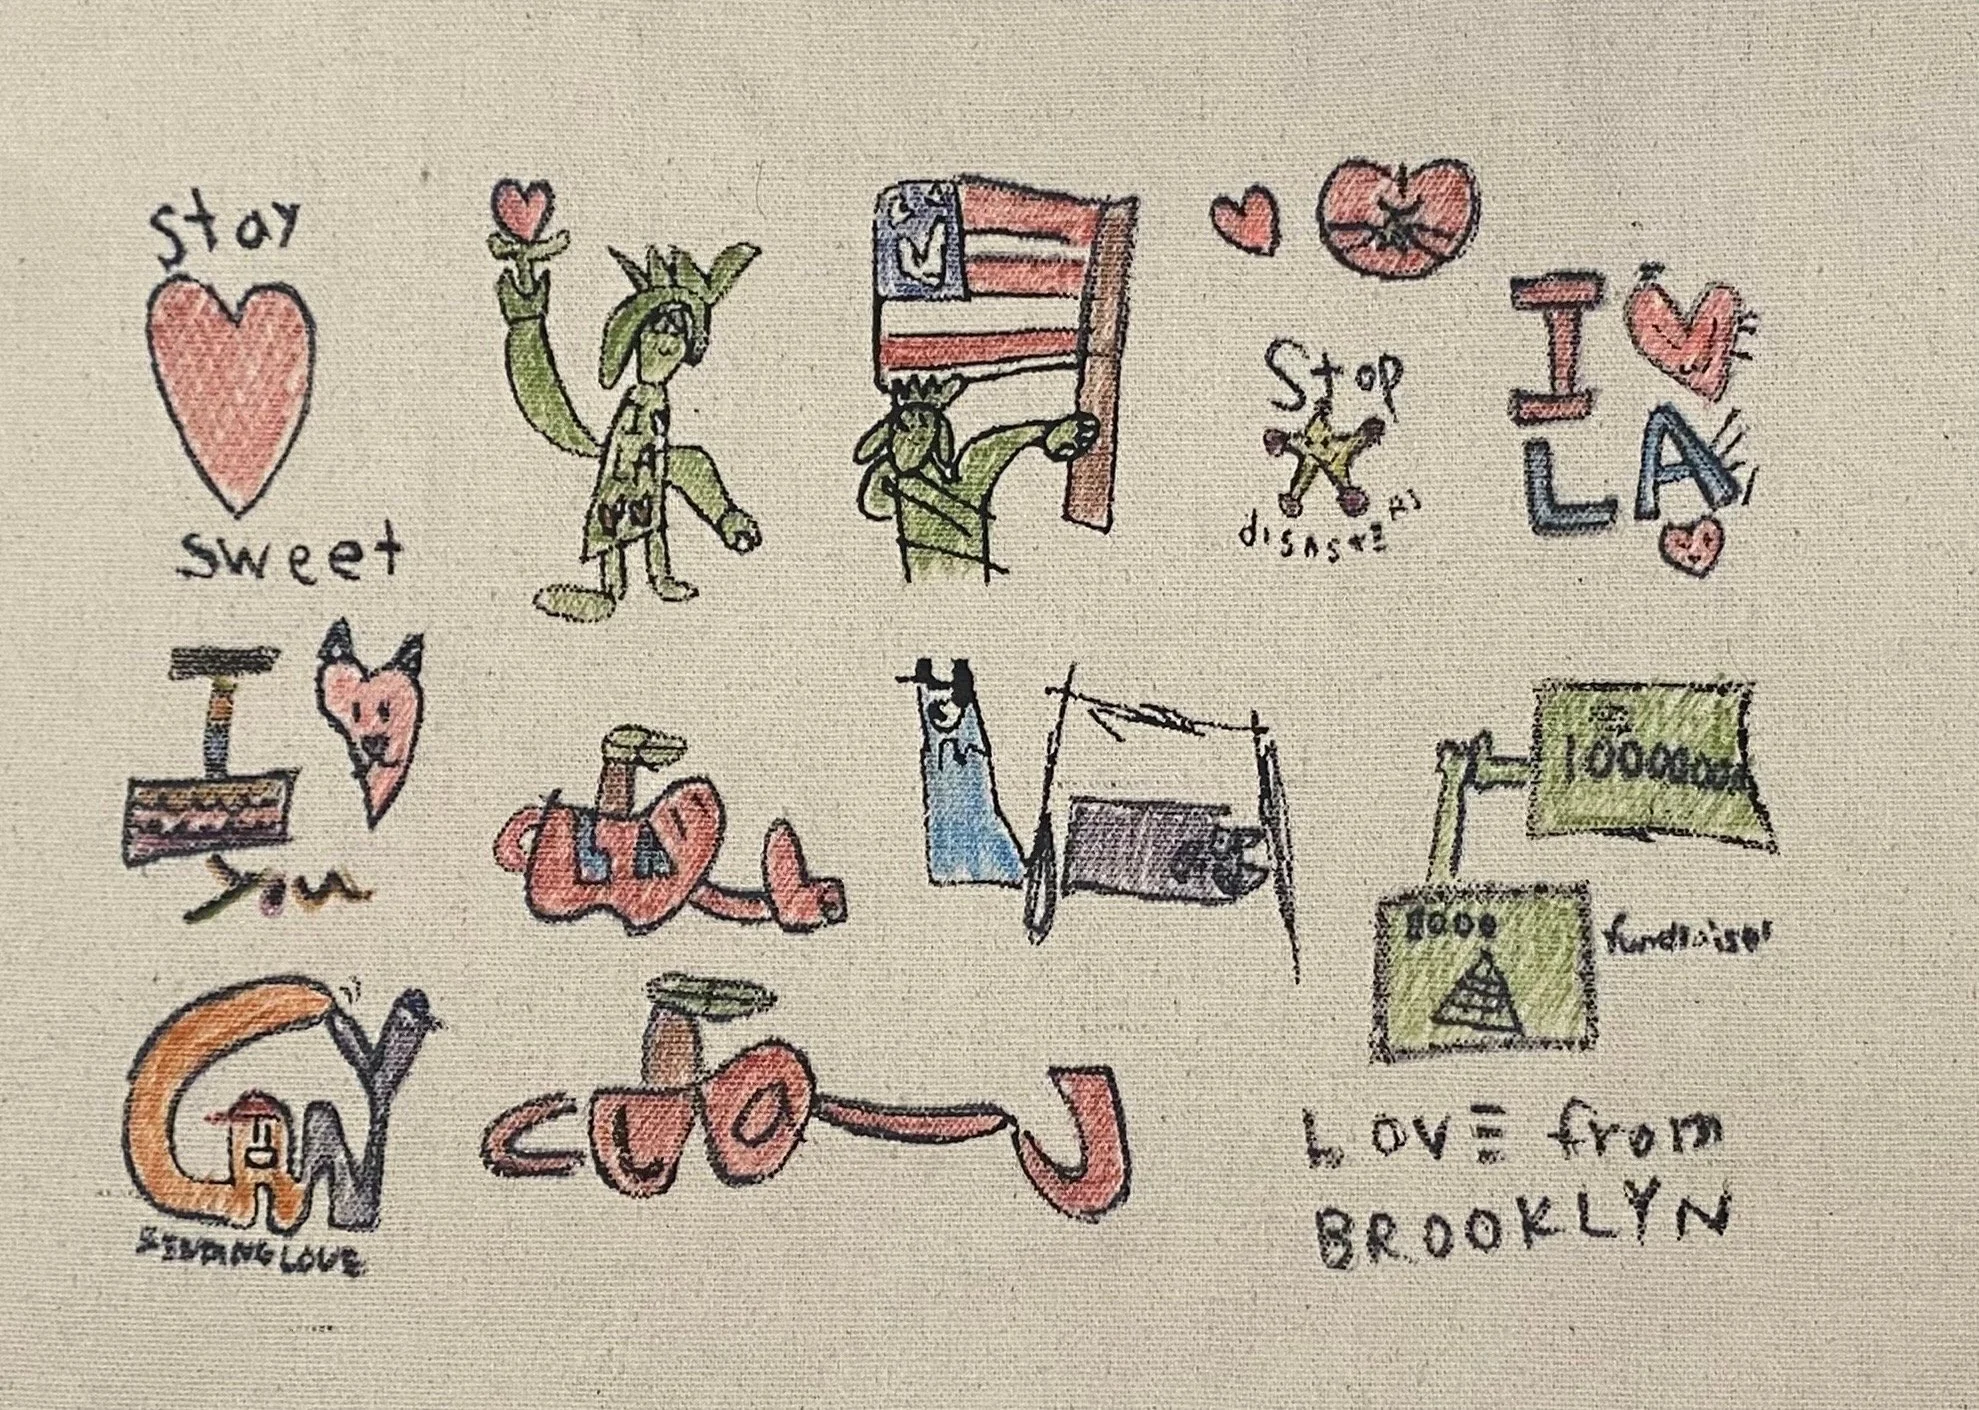 Stay
sweet
I
LA
Stop
disasters
I
LA
I
You
LA
10000000
1000
fundraiser
NY
SENDING LOVE
LOVE from
BROOKLYN